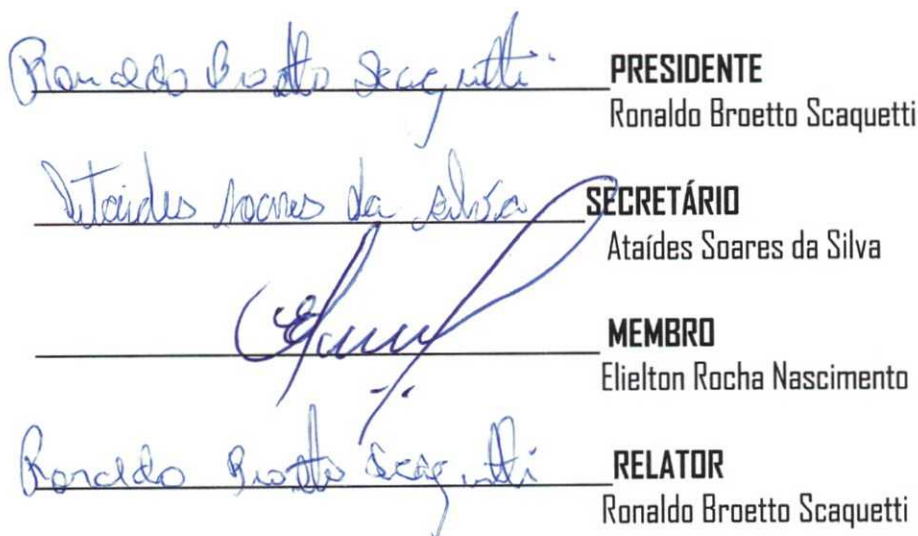 Ronaldo Broetto Scaquetti PRESIDENTE
Ronaldo Broetto Scaquetti
Ataides soares da silva SECRETÁRIO
Ataídes Soares da Silva
MEMBRO
Elielton Rocha Nascimento
Ronaldo Broetto Scaquetti RELATOR
Ronaldo Broetto Scaquetti